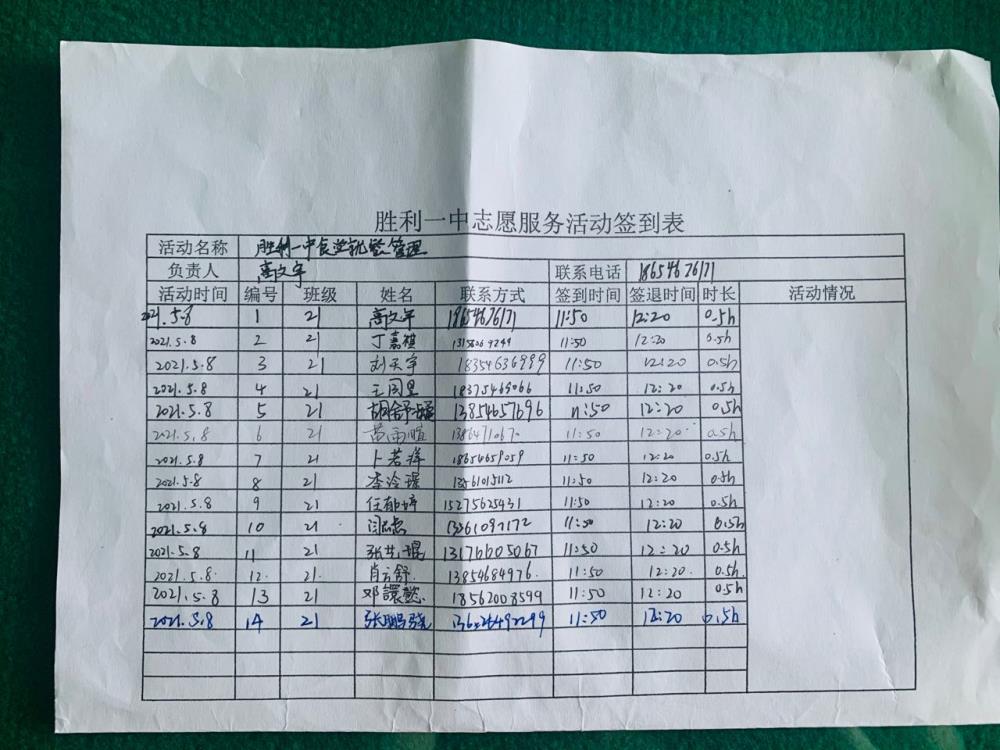 胜利一中志愿服务活动签到表
活动名称 胜利一中食堂就餐管理
负责人 高文宇 联系电话 18654676171
活动时间 编号 班级 姓名 联系方式 签到时间 签退时间 时长 活动情况
2021.5.8 1 21 高文宇 18654676171 11:50 12:20 0.5h
2021.5.8 2 21 丁嘉祺 11:50 12:20 0.5h
2021.5.8 3 21 刘天宇 18354636989 11:50 12:20 0.5h
2021.5.8 4 21 18375469066 11:50 12:20 0.5h
2021.5.8 5 21 13854657696 11:50 12:20 0.5h
2021.5.8 6 21 11:50 12:20 0.5h
2021.5.8 7 21 卜若祥 18654659059 11:50 12:20 0.5h
2021.5.8 8 21 13561015112 11:50 12:20 0.5h
2021.5.8 9 21 任郁婷 15275625431 11:50 12:20 0.5h
2021.5.8 10 21 11:50 12:20 0.5h
2021.5.8 11 21 13176605067 11:50 12:20 0.5h
2021.5.8. 12. 21. 肖云舒. 13854684976. 11:50 12:20. 0.5h.
2021.5.8 13 21 18562008599 11:50 12:20 0.5h
2021.5.8 14 21 张鹏骁 11:50 12:20 0.5h